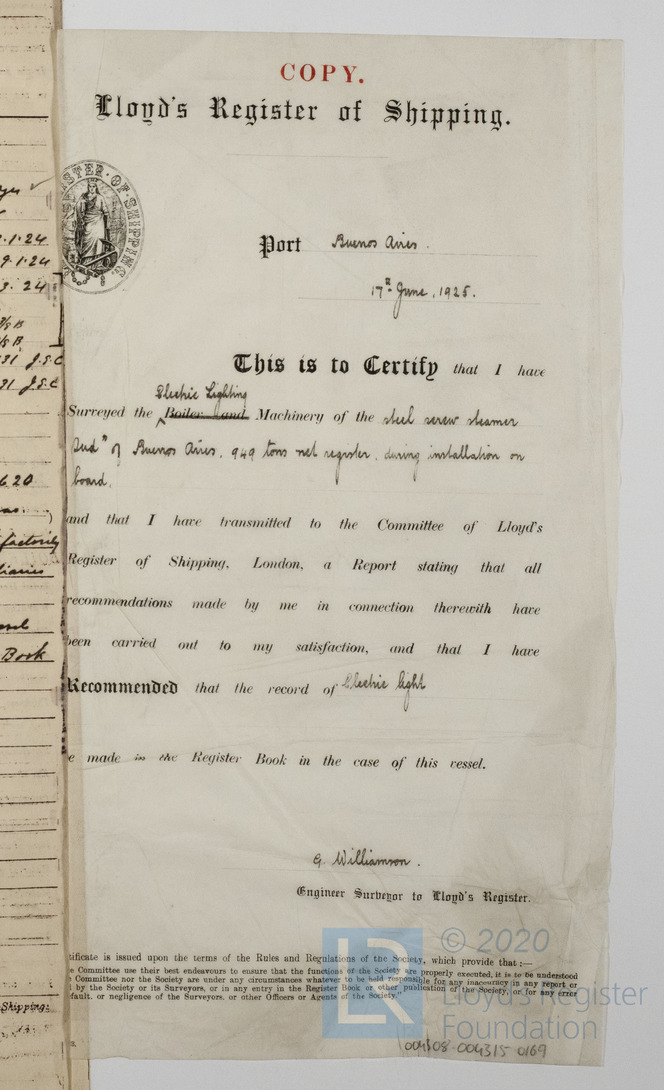 COPY.
Lloyd's Register of Shipping.
Port Buenos Aires.
17th June, 1925.
This is to Certify that I have
Electric Lighting
Surveyed the Boiler and Machinery of the steel screw steamer
of Buenos Aires, 949 tons net register, during installation on
board,
and that I have transmitted to the Committee of Lloyd's
Register of Shipping, London, a Report stating that all
recommendations made by me in connection therewith have
been carried out to my satisfaction, and that I have
Recommended that the record of Electric light
e made in the Register Book in the case of this vessel.
G. Williamson.
Engineer Surveyor to Lloyd's Register.
tificate is issued upon the terms of the Rules and Regulations of the Society, which provide that :—
e Committee use their best endeavours to ensure that the functions of the Society are properly executed, it is to be understood
Committee nor the Society are under any circumstances whatever to be held responsible for any inaccuracy in any report or
l by the Society or its Surveyors, or in any entry in the Register Book or other publication of the Society, or for any error
fault, or negligence of the Surveyors, or other Officers or Agents of the Society."
© 2020
Lloyd's Register
Foundation
004308-004315-0169
9.1.24
24
31 J.S.C
31 J.S.C
620
factorily
Book
Shipping.